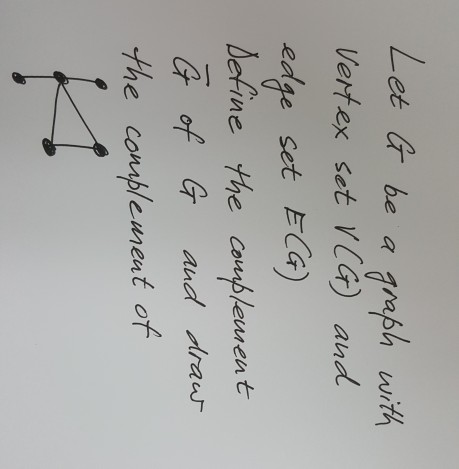 Let G be a graph with
Vertex set V(G) and
edge set E(G)
Define the complement
G̅ of G and draw
the complement of